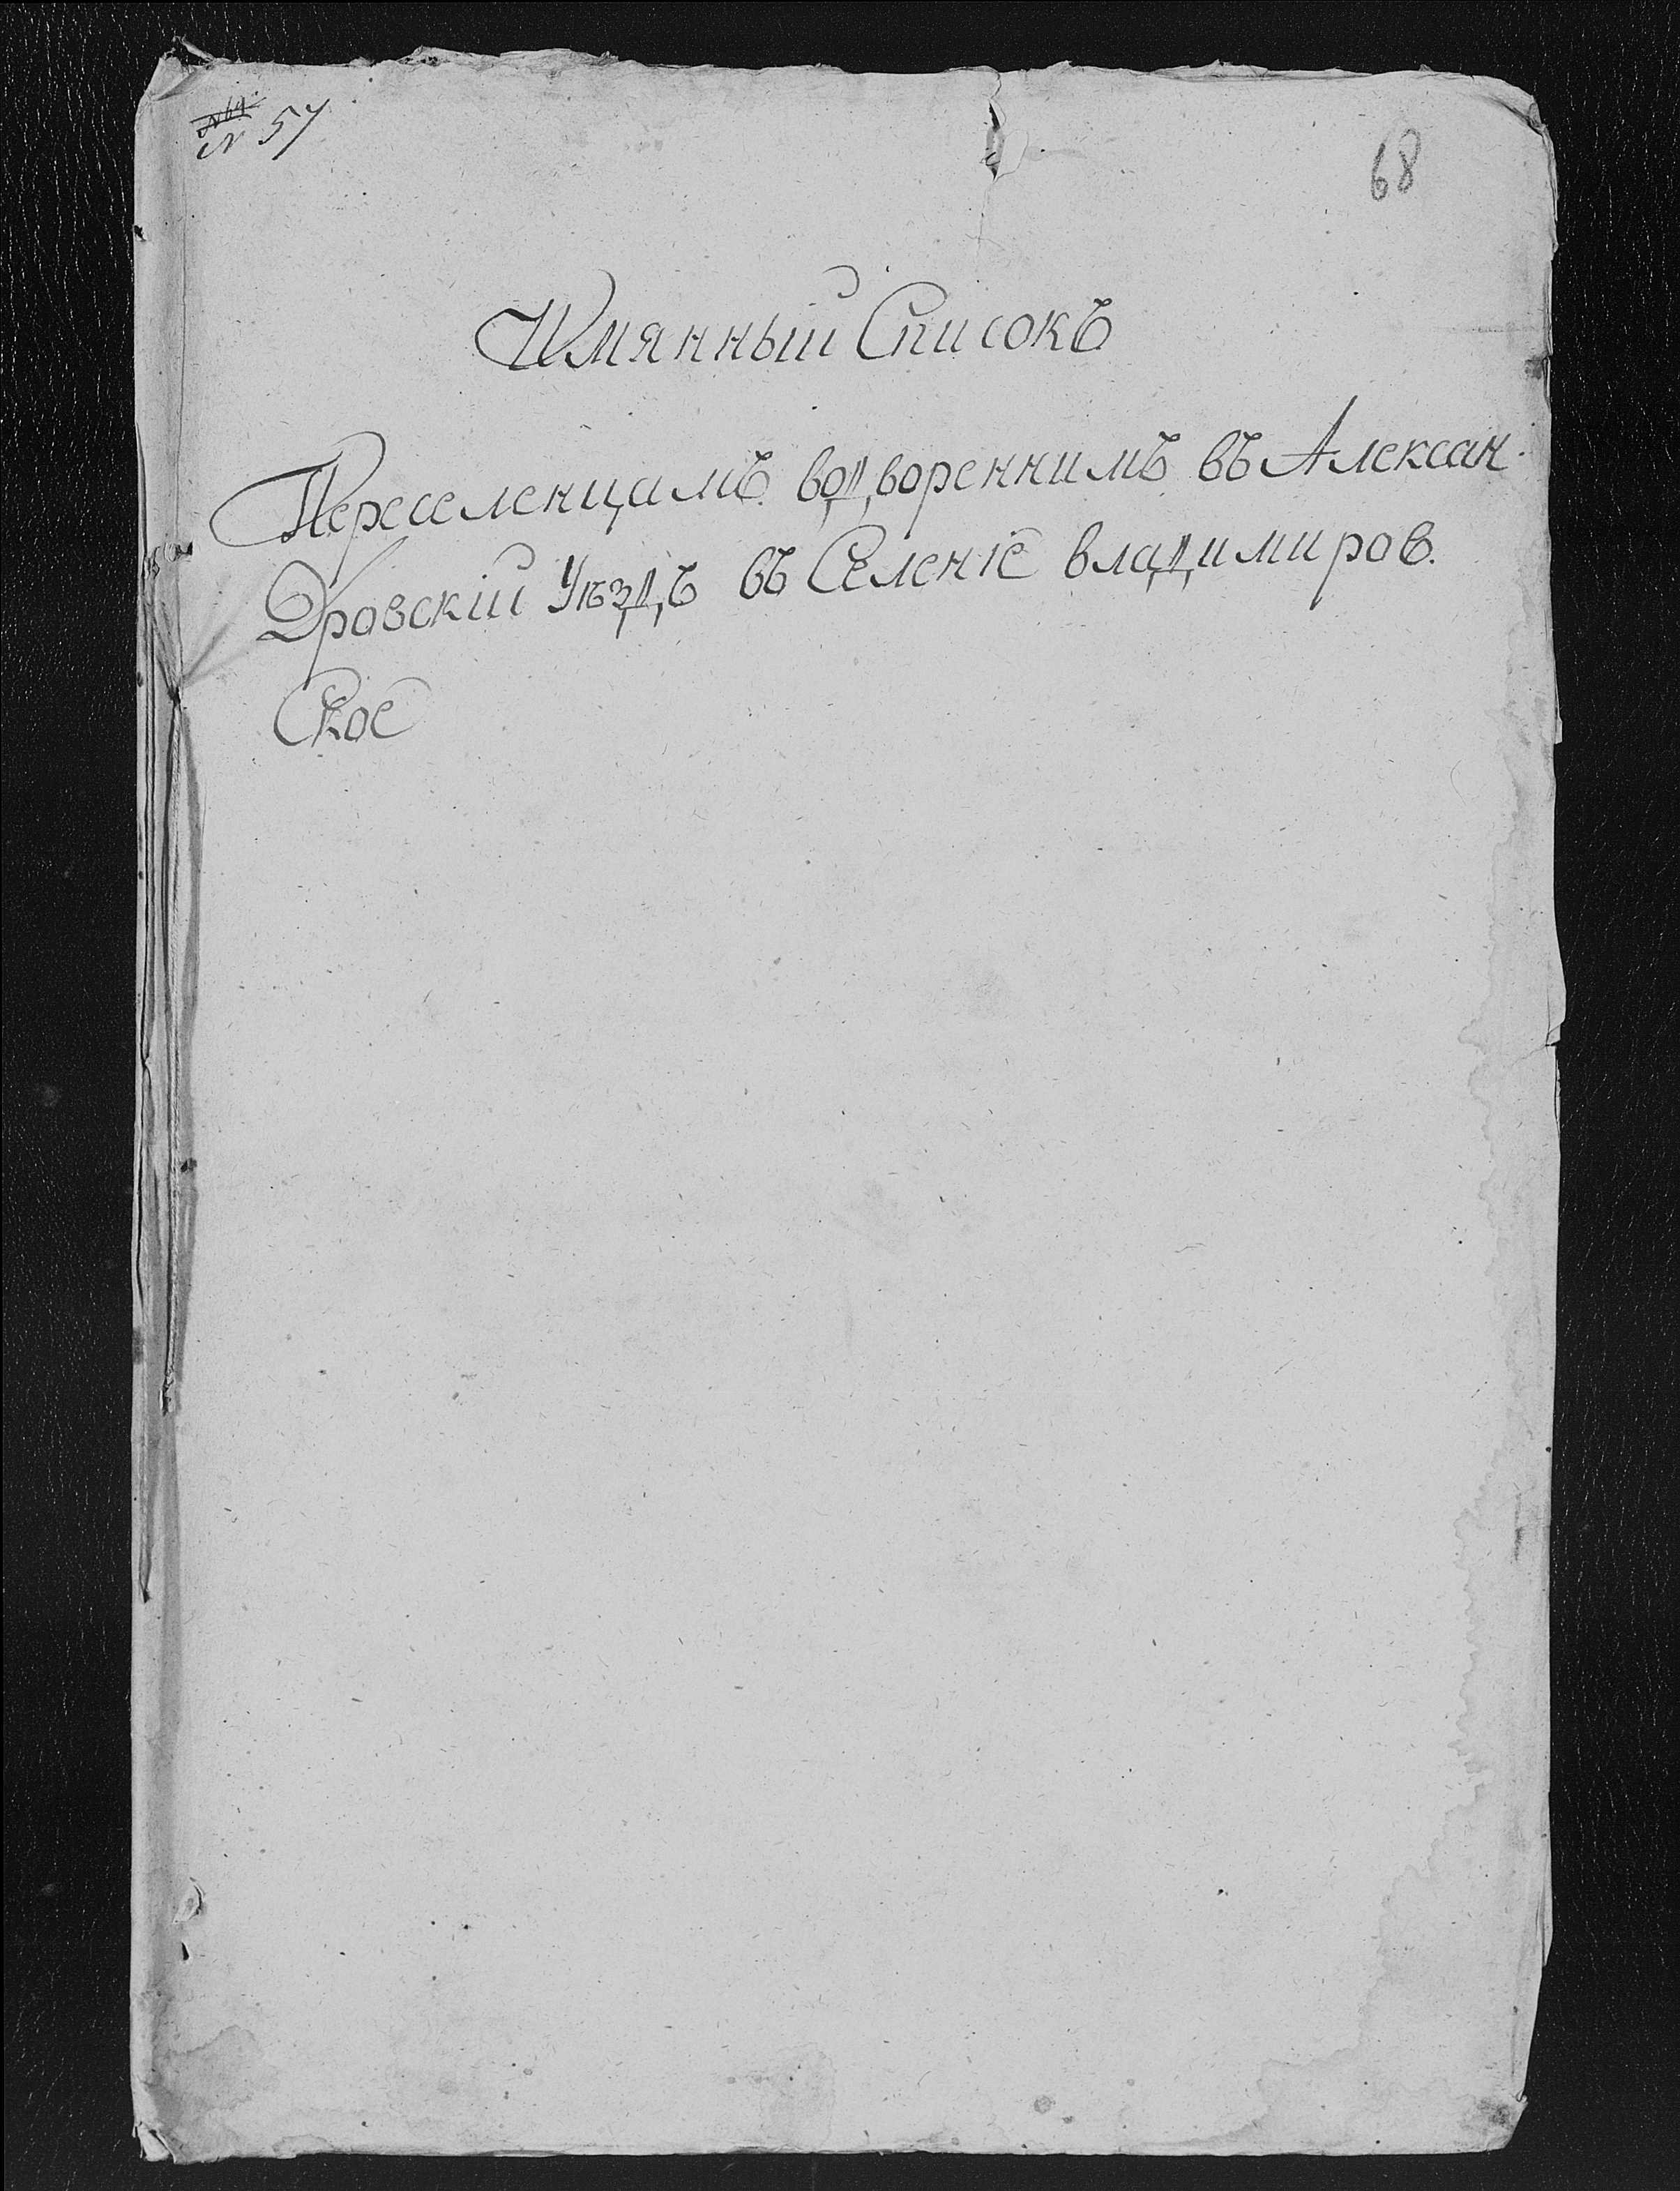 № 57
68
Имянный Списокъ
Переселенцамъ водвореннимъ въ Алексан-
Дровскій Уѣздъ въ Селеніе владимиров.
Ское